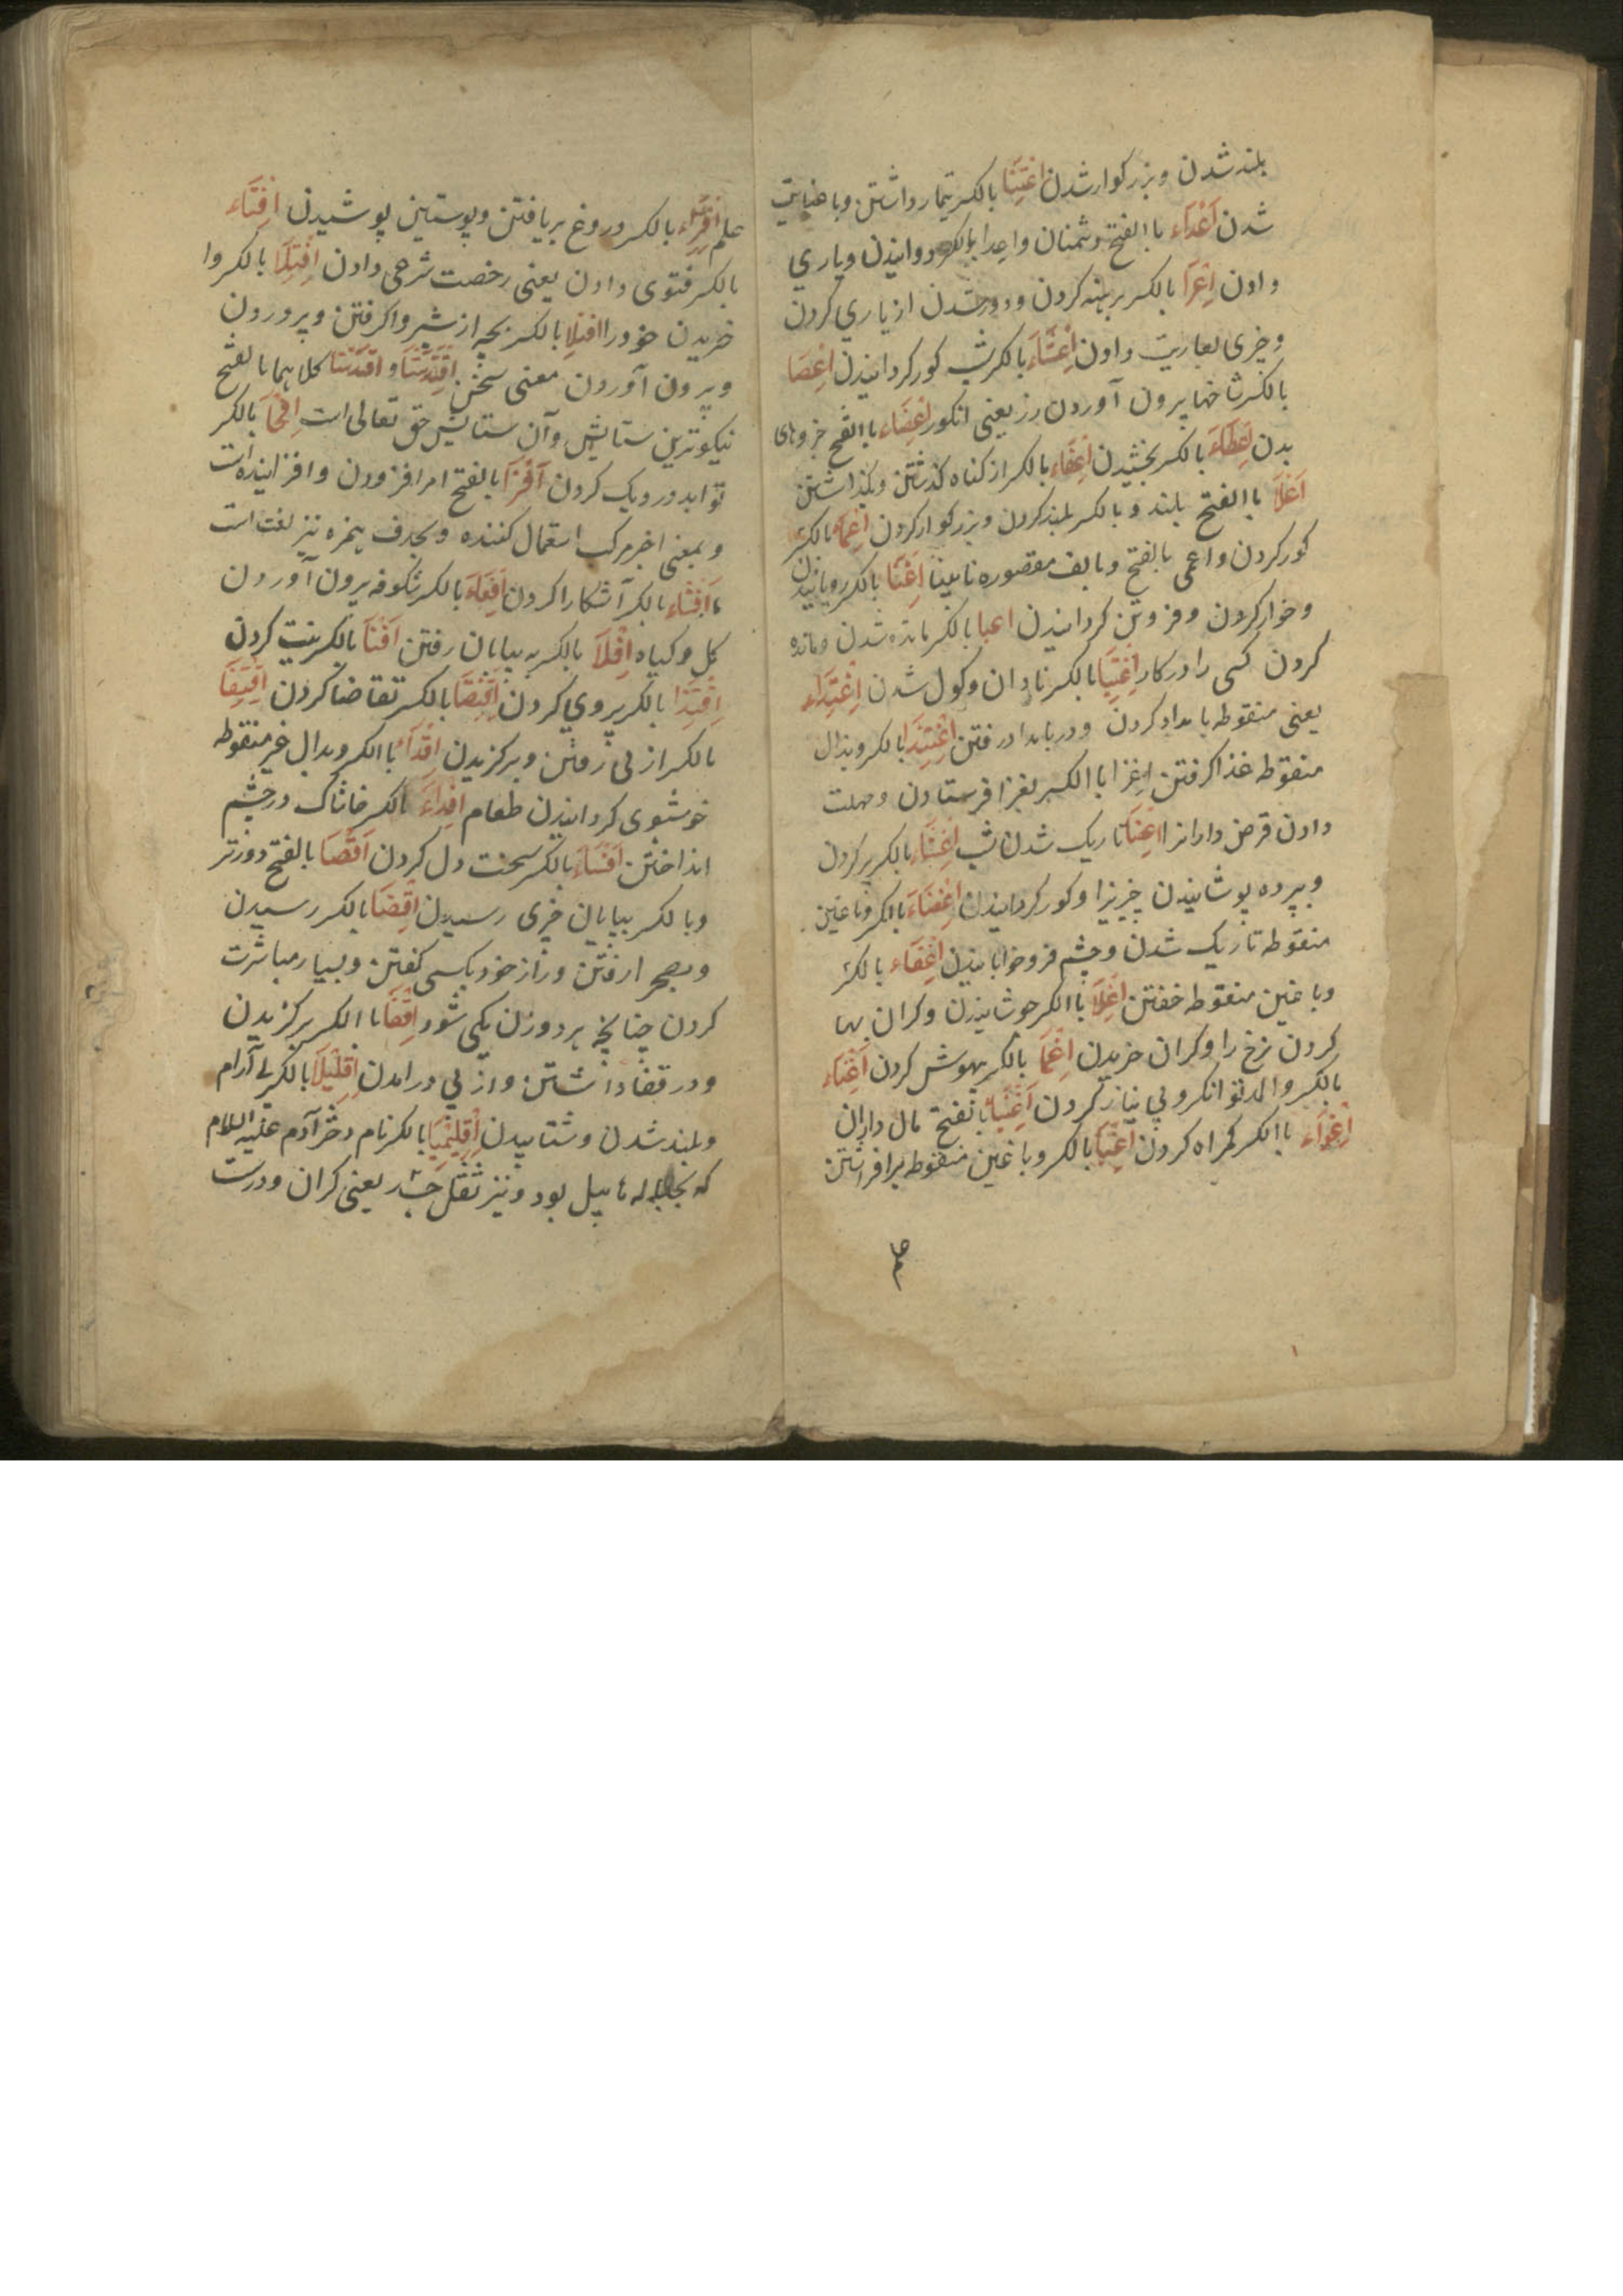 بلند شدن و بزرکوار شدن اعتنا بالکسر تیمار داشتن و با عنایت
شدن اعداء با الفتح دشمنان و اعدا بالکسر دوانیدن و یاری
دادن اعرا بالکسر برهنه کردن و دور شدن از یاری کردن
و چیزی بعاریت دادن اعشاء بالکسر شب کور کردانیدن اعصا
بالکسر شاخها بیرون آوردن رز یعنی انکور اعضاء با الفتح جزوهای
بدن اعطاء بالکسر بخشیدن اعفاء بالکسر از کناه کذشتن و بکذاشتن
اعلا با الفتح بلند و بالکسر بلند کردن و بزرکوار کردن اعما بالکسر
کور کردن و اعمی بالفتح و بالف مقصوره نابینا اعنا بالکسر رویانیدن
و خوار کردن و فروتن کردانیدن اعیا بالکسر مانده شدن و مانده
کردن کسی را در کار اغتبا بالکسر نادان و کول شدن اغتداء
یعنی منقوطه بامداد کردن و در بامداد رفتن اغتذا بالکسر و بذال
منقوطه غذا کرفتن اغزا با الکسر بغزا فرستادن و مهلت
دادن قرض دارانرا تاریک شدن شب اغشاء بالکسر پر کردن
و بپرده پوشانیدن چیزیرا و کور کردانیدن اغضاء بالکسر و با غین
منقوطه تاریک شدن و چشم فرو خوابانیدن اغفاء بالکسر
و با غین منقوطه خفتن اغلا با الکسر جوشانیدن و کران بها
کردن نرخ را و کران خریدن اغما بالکسر بیهوش کردن اغناء
بالکسر و المد توانکر و بی نیاز کردن اغنیا بالفتح مال داران
اغواء با الکسر کمراه کردن اغیا بالکسر و با غین منقوطه برافراشتن
علم افتراء بالکسر دروغ بر بافتن و پوستین پوشیدن افتاء
بالکسر فتوی دادن یعنی رخصت شرعی دادن افتدا بالکسر وا
خریدن خود را افتلا بالکسر بچه از شیر وا کرفتن و پروردن
و بیرون آوردن معنی سخن و کلاهما بالفتح
نیکوترین ستایش و آن ستایش حق تعالی است بالکسر
توابد در دیک کردن افزا بالفتح امر افزودن و افزاینده است
و بمعنی اخیر مرکب استعمال کنند و بحذف همزه نیز لغت است
افشاء بالکسر آشکارا کردن بالکسر شکوفه بیرون آوردن
کل و کیاه افلا بالکسر به بیابان رفتن افنا بالکسر نیست کردن
اقتدا بالکسر پیروی کردن اقتضا بالکسر تقاضا کردن اقتفا
بالکسر از پی رفتن و برکزیدن اقداء با الکسر و بدال غیر منقوطه
خوشبوی کردانیدن طعام اقذاء بالکسر خاشاک در چشم
انداختن اقساء بالکسر سخت دل کردن اقصا بالفتح دورتر
و بالکسر بپایان چیزی رسیدن اقضا بالکسر رسیدن
و بصحرا رفتن و راز خود بکسی کفتن و بسیار مباشرت
کردن چنانچه هر دو زن یکی شود اقفا با الکسر برکزیدن
و در قفا داشتن و از پی در امدن اقلیلا بالکسر بی آرام
و بلند شدن و شتابیدن اقلیمیا بالکسر نام دختر آدم علیه السلام
که بحباله هابیل بود و نیز ثقل یعنی کران و درست